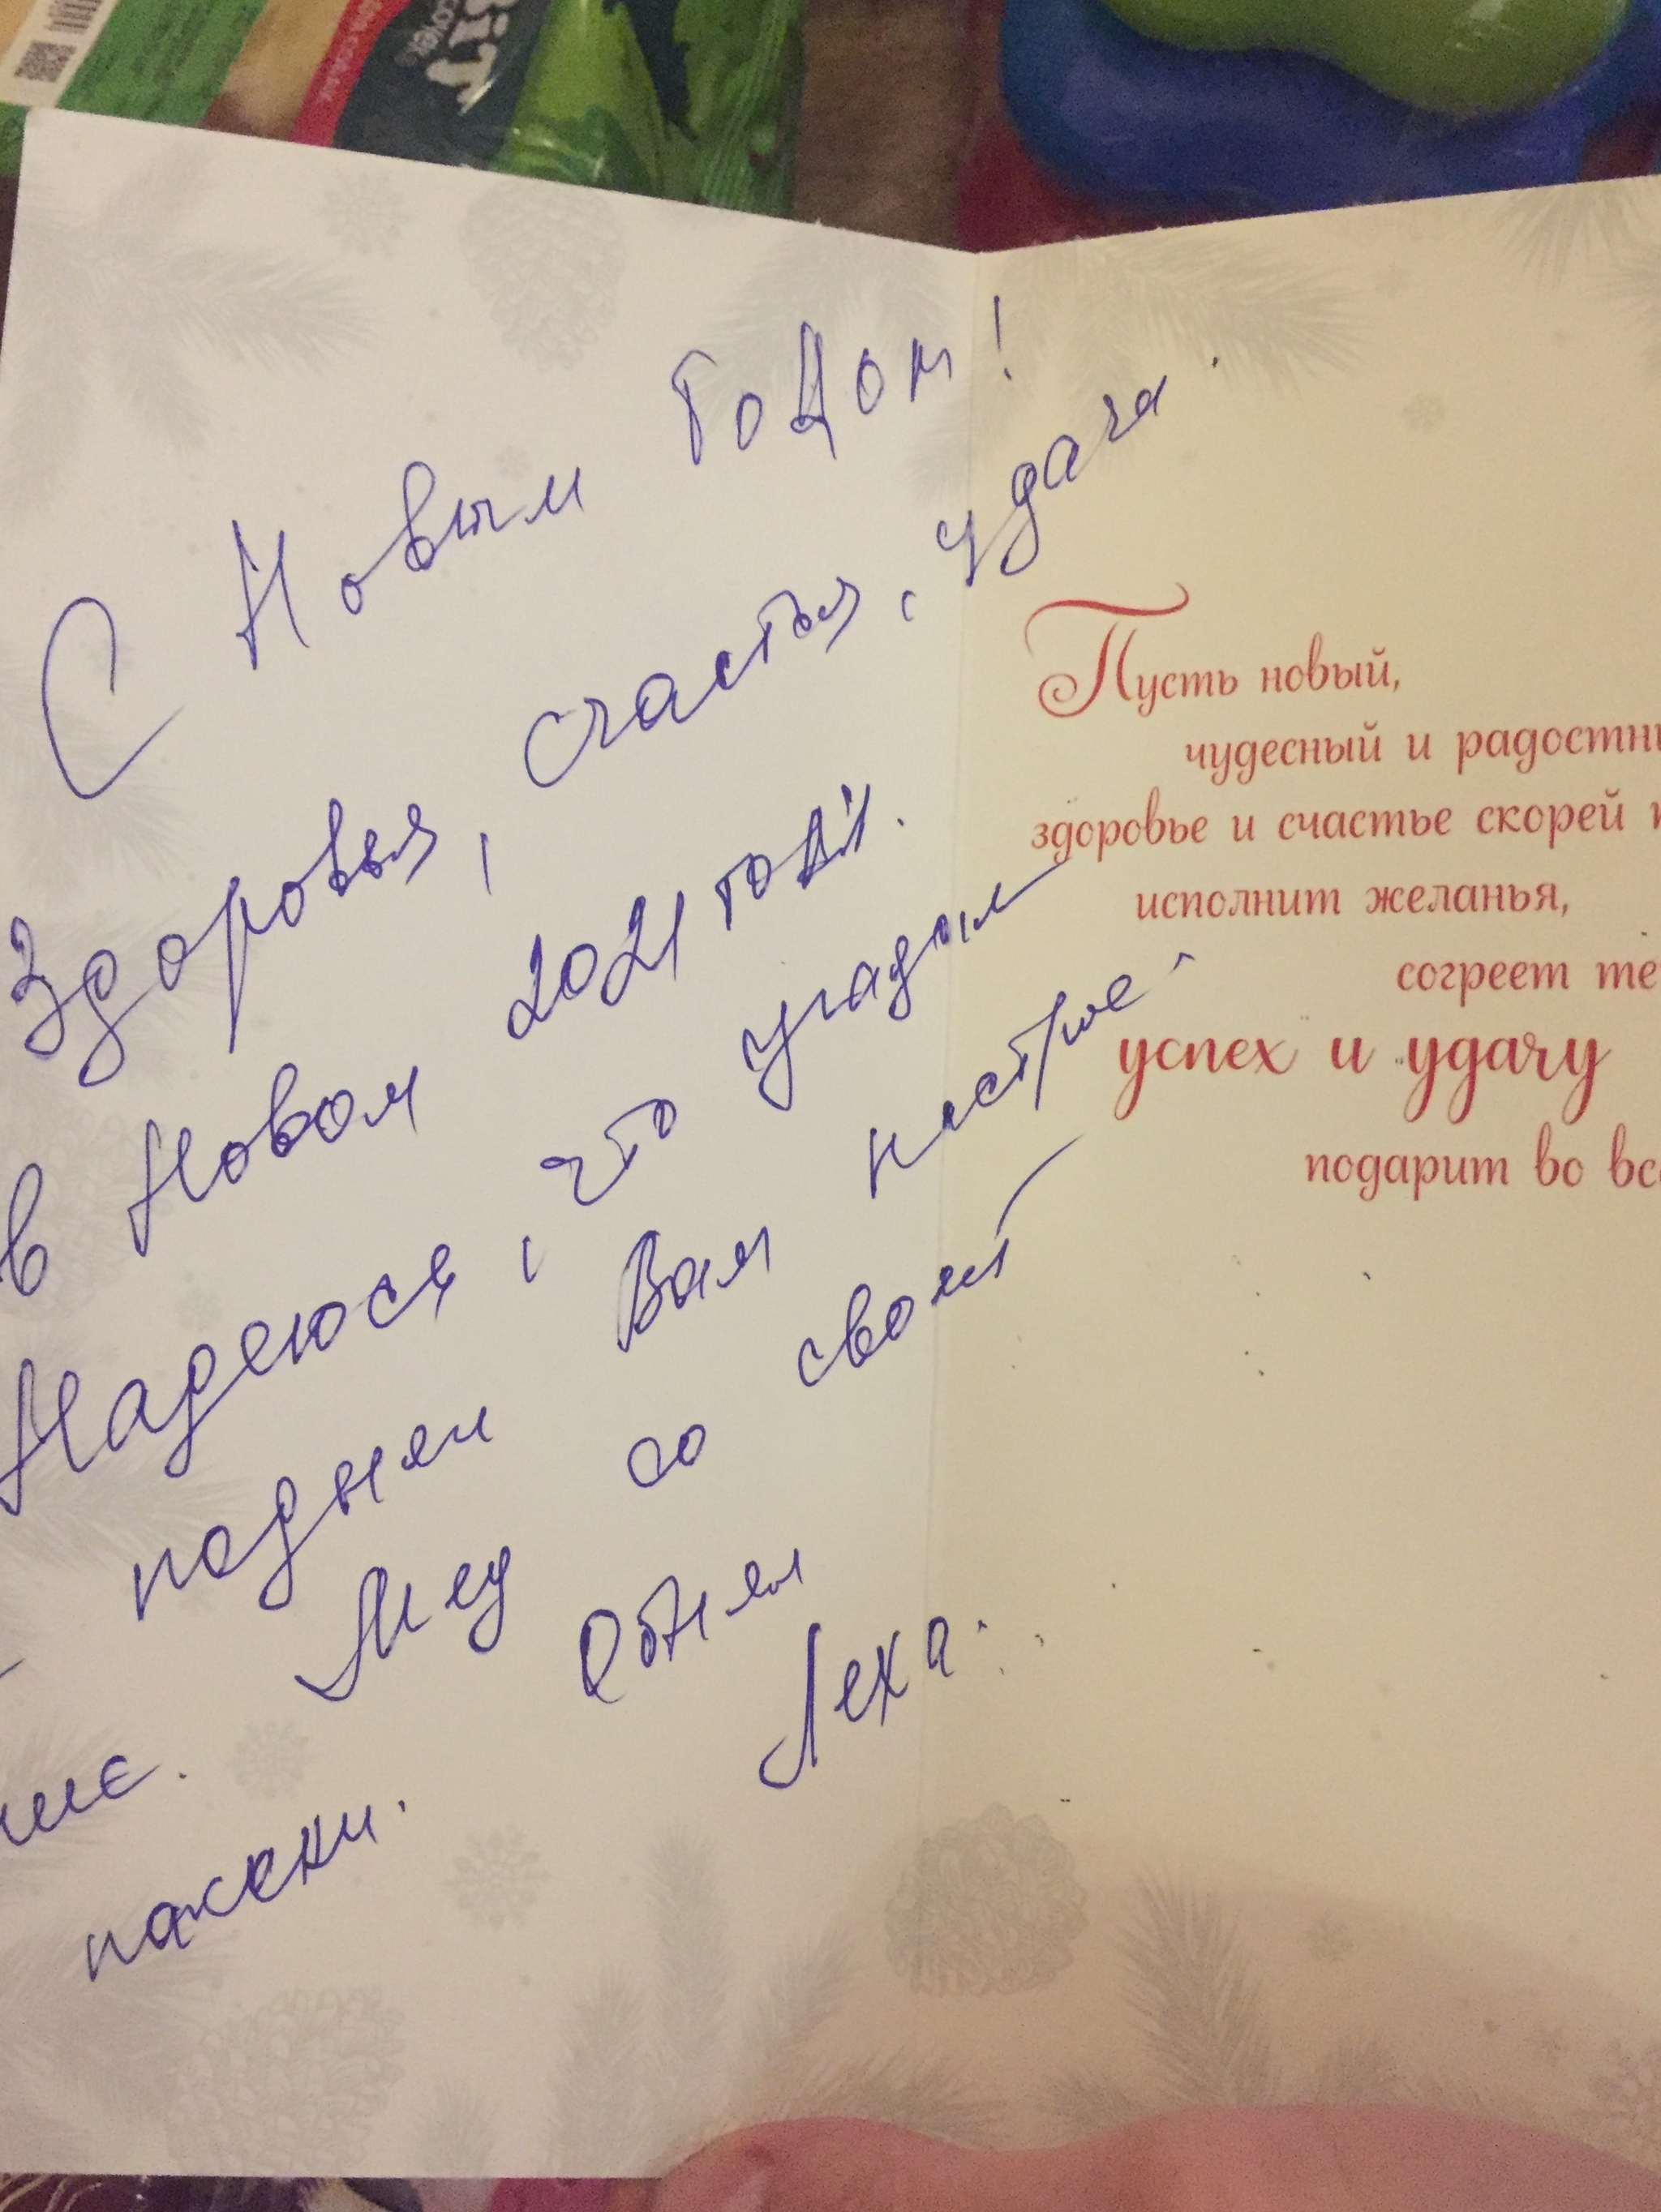 С Новым Годом!
Здоровья, счастья, удача.
в Новом 2021 году.
Надеюся, что угадал
поднял Вам настрое-
ние. Мед со своей
пасеки. Обнял
Леха.
Пусть новый,
чудесный и радостны
здоровье и счастье скорей
исполнит желанья,
согреет те
успех и удачу
подарит во вс